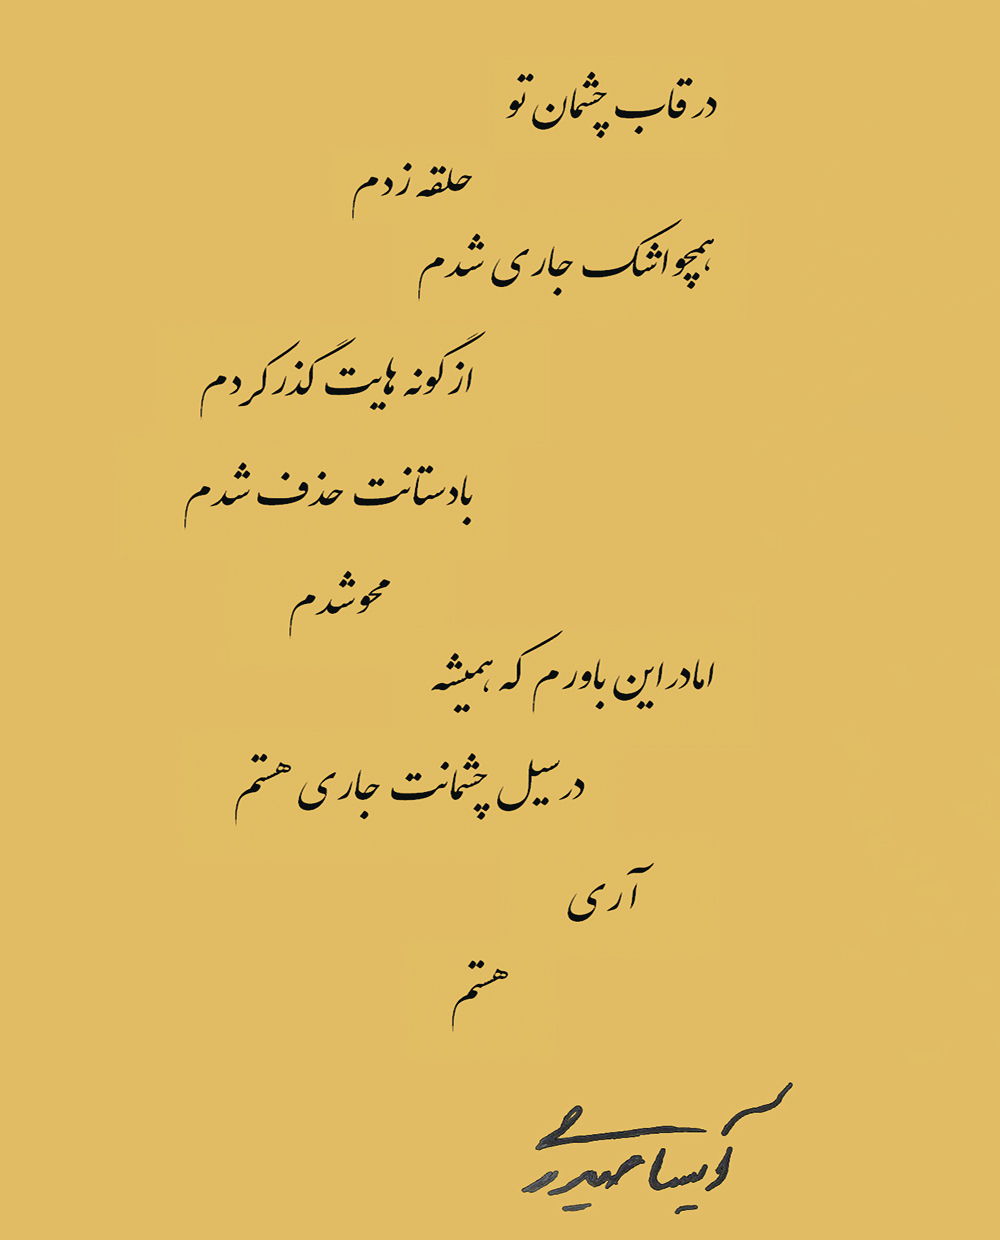 در قاب چشمان تو
حلقه زدم
همچو اشک جاری شدم
از گونه هایت گذر کردم
با دستانت حذف شدم
محو شدم
اما در این باورم که همیشه
در سیل چشمانت جاری هستم
آری
هستم